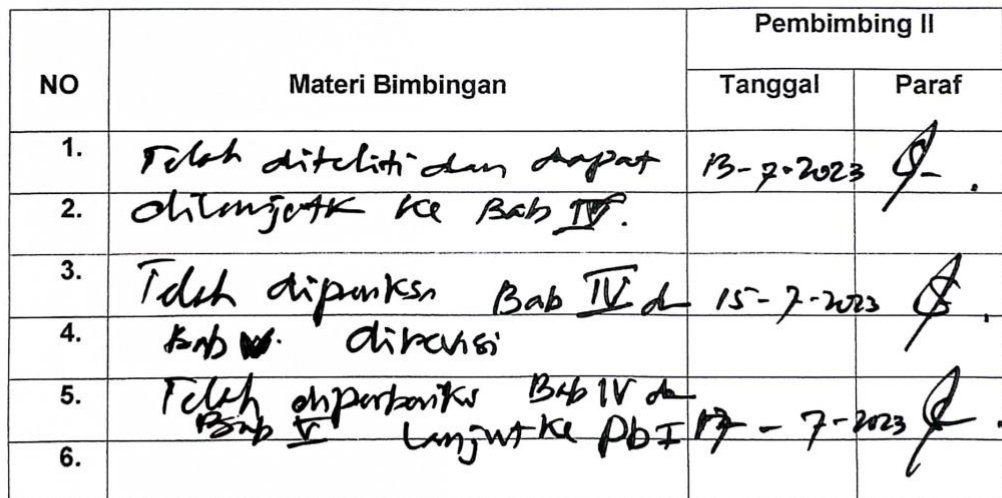 Pembimbing II
NO Materi Bimbingan Tanggal Paraf
1. Telah diteliti dan dapat 13-7-2023
2. dilanjutk ke Bab IV.
3. Telah diperiksa Bab IV d 15-7-2023
4. Bab V. direvisi
5. Telah diperbaiki Bab IV da
Bab V lanjut ke Pb I 17-7-2023
6.